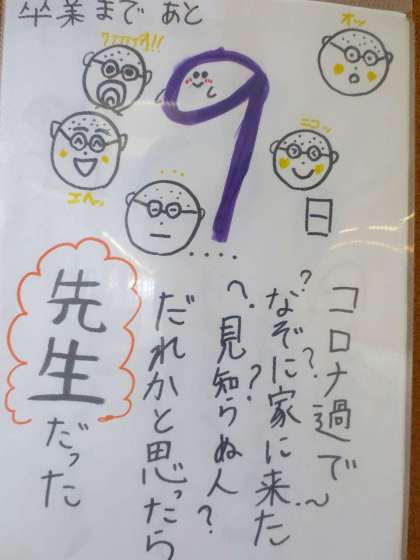 卒業まで あと
9
日
オッ
ニコッ
エヘッ
...
....
コロナ過で〜
?なぞに家に来た...
?
?
へ?見知らぬ人?
?
だれかと思ったら
先生だった